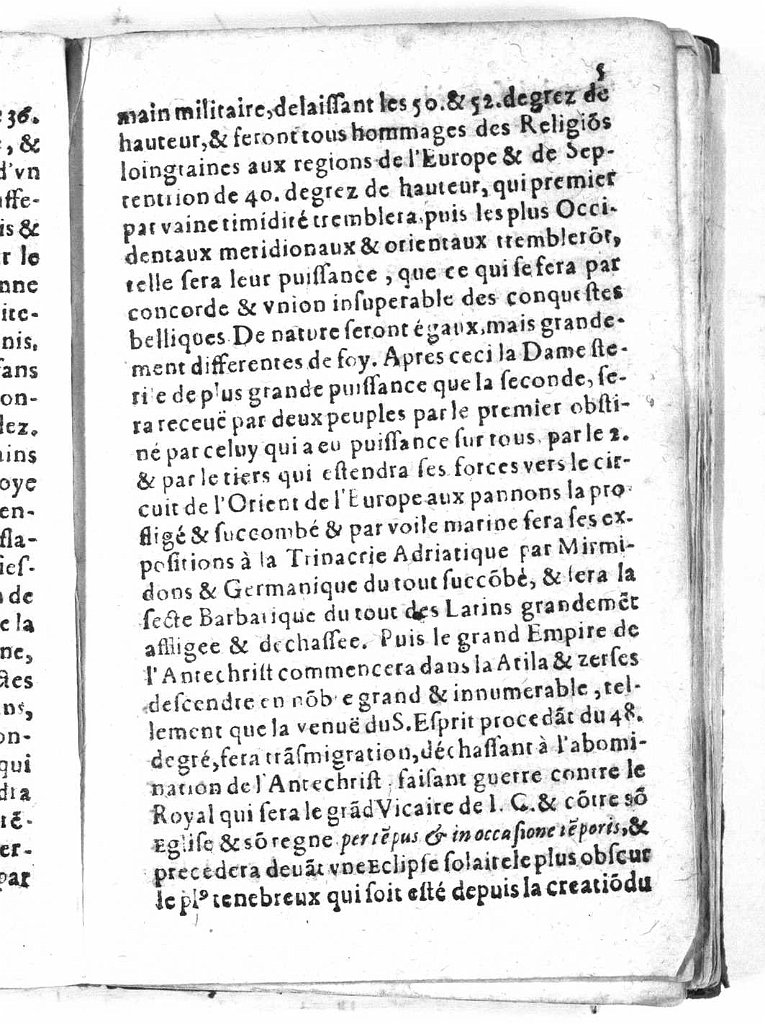 36.
, &
d'vn
is &
r le
nne
nis.
fans
on-
lez.
ains
oye
en-
fla-
de
e la
ne,
ctes
ans,
on-
qui
dra
er-
par
5
main militaire, delaiſſant les 50. & 52. degrez de
hauteur, & feront tous hommages des Religiōs
loingtaines aux regions de l'Europe & de Sep-
tentrion de 40. degrez de hauteur, qui premier
par vaine timidité tremblera. puis les plus Occi-
dentaux meridionaux & orientaux tremblerōt,
telle ſera leur puiſſance, que ce qui ſe fera par
concorde & vnion inſuperable des conqueſtes
belliques. De nature ſeront égaux. mais grande-
ment differentes de foy. Apres ceci la Dame ſte-
rile de plus grande puiſſance que la ſeconde, ſe-
ra receuë par deux peuples par le premier obſti-
né par celuy qui a eu puiſſance ſur tous, par le 2.
& par le tiers qui eſtendra ſes forces vers le cir-
cuit de l'Orient de l'Europe aux pannons la pro
fligé & ſuccombé & par voile marine fera ſes ex-
poſitions à la Trinacrie Adriatique par Mirmi-
dons & Germanique du tout ſuccōbé, & ſera la
ſecte Barbarique du tout des Latins grandemēt
affligee & dechaſſee. Puis le grand Empire de
l'Antechriſt commencera dans la Atila & zerſes
deſcendre en nōb e grand & innumerable, tel-
lement que la venuë du S. Eſprit procedāt du 48.
degré, fera trāſmigration, déchaſſant à l'abomi-
nation de l'Antechriſt, faiſant guerre contre le
Royal qui ſera le grād Vicaire de I. C. & cōtre ſō
Egliſe & sō regne per tēpus & in occaſione tēporis, &
precedera deuāt vne Eclipſe ſolaire le plus obſcur
le plꝰ tenebreux qui ſoit eſté depuis la creatiō du